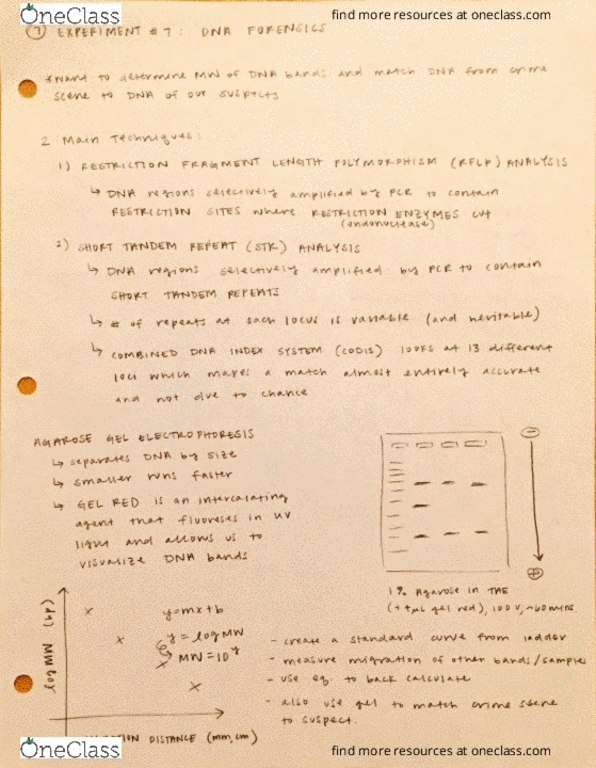 OneClass
find more resources at oneclass.com
7 EXPERIMENT #7: DNA FORENSICS
*Want to determine MW of DNA bands and match DNA from crime
scene to DNA of our suspects
2 Main Techniques:
1) RESTRICTION FRAGMENT LENGTH POLYMORPHISM (RFLP) ANALYSIS
↳ DNA regions selectively amplified by PCR to contain
RESTRICTION SITES where RESTRICTION ENZYMES cut
(endonuclease)
2) SHORT TANDEM REPEAT (STR) ANALYSIS
↳ DNA regions selectively amplified by PCR to contain
SHORT TANDEM REPEATS
↳ # of repeats at each locus is variable (and heritable)
↳ COMBINED DNA INDEX SYSTEM (CODIS) looks at 13 different
loci which makes a match almost entirely accurate
and not due to chance
AGAROSE GEL ELECTROPHORESIS
↳ separates DNA by size
↳ smaller runs faster
↳ GEL RED is an intercalating
agent that fluoreses in UV
light and allows us to
visualize DNA bands
−
+
1% Agarose in TAE
gel red), 100V, ~60mins.
log MW (bp)
y=mx+b
y=log MW
MW=10^y
DISTANCE (mm, cm)
- create a standard curve from ladder
- measure migration of other bands/samples
- use eq. to back calculate
- also use gel to match crime scene
to suspect.
OneClass
find more resources at oneclass.com